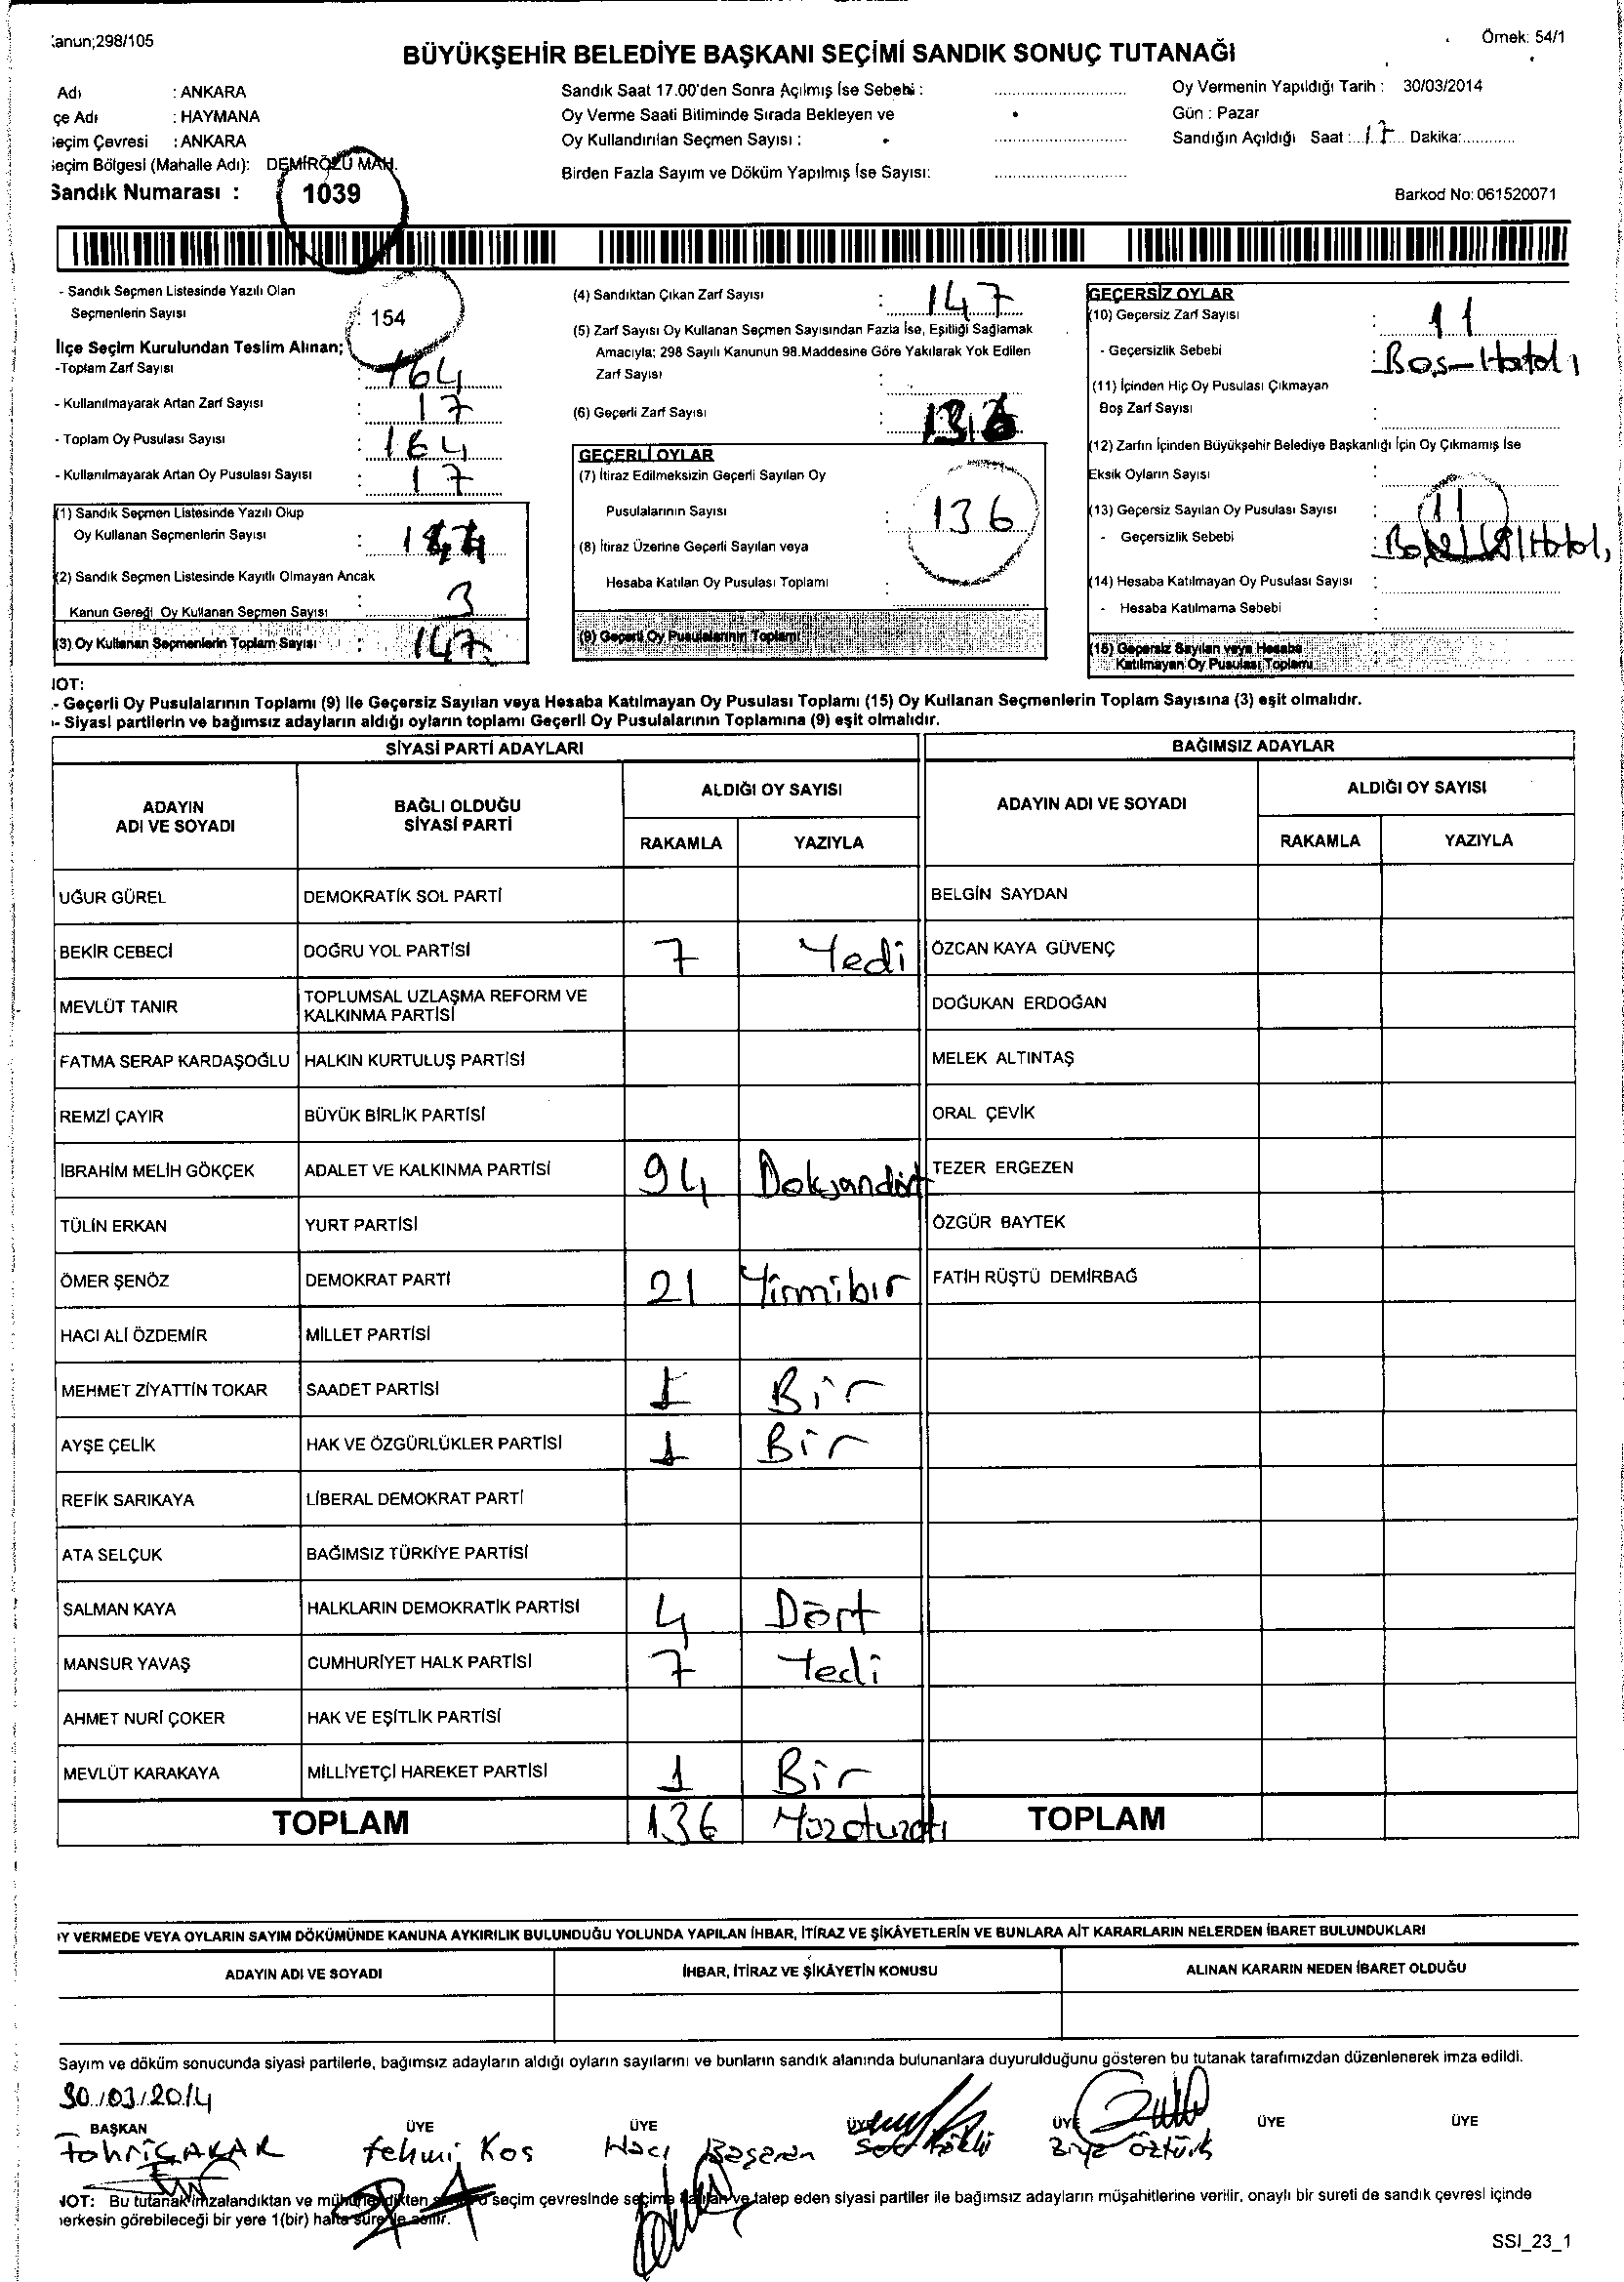 anun;298/105
Örnek: 54/1
BÜYÜKŞEHİR BELEDİYE BAŞKANI SEÇİMİ SANDIK SONUÇ TUTANAĞI
Adı : ANKARA
çe Adı : HAYMANA
eçim Çevresi : ANKARA
eçim Bölgesi (Mahalle Adı): DEMİRÖZÜ MAH.
Sandık Numarası : 1039
Sandık Saat 17.00'den Sonra Açılmış İse Sebebi :
Oy Verme Saati Bitiminde Sırada Bekleyen ve
Oy Kullandırılan Seçmen Sayısı :
Birden Fazla Sayım ve Döküm Yapılmış İse Sayısı:
Oy Vermenin Yapıldığı Tarih : 30/03/2014
Gün : Pazar
Sandığın Açıldığı Saat : 17 Dakika:
Barkod No: 061520071
- Sandık Seçmen Listesinde Yazılı Olan
Seçmenlerin Sayısı : 154
İlçe Seçim Kurulundan Teslim Alınan;
-Toplam Zarf Sayısı : 164
- Kullanılmayarak Artan Zarf Sayısı : 17
- Toplam Oy Pusulası Sayısı : 164
- Kullanılmayarak Artan Oy Pusulası Sayısı : 17
(1) Sandık Seçmen Listesinde Yazılı Olup
Oy Kullanan Seçmenlerin Sayısı :
(2) Sandık Seçmen Listesinde Kayıtlı Olmayan Ancak
Kanun Gereği Oy Kullanan Seçmen Sayısı : 3
(3) Oy Kullanan Seçmenlerin Toplam Sayısı : 147
(4) Sandıktan Çıkan Zarf Sayısı : 147
(5) Zarf Sayısı Oy Kullanan Seçmen Sayısından Fazla İse, Eşitliği Sağlamak
Amacıyla; 298 Sayılı Kanunun 98.Maddesine Göre Yakılarak Yok Edilen
Zarf Sayısı :
(6) Geçerli Zarf Sayısı : 136
GEÇERLİ OYLAR
(7) İtiraz Edilmeksizin Geçerli Sayılan Oy
Pusulalarının Sayısı : 136
(8) İtiraz Üzerine Geçerli Sayılan veya
Hesaba Katılan Oy Pusulası Toplamı :
(9) Geçerli Oy Pusulalarının Toplamı
GEÇERSİZ OYLAR
(10) Geçersiz Zarf Sayısı : 11
- Geçersizlik Sebebi : Boş-Hatalı
(11) İçinden Hiç Oy Pusulası Çıkmayan
Boş Zarf Sayısı :
(12) Zarfın İçinden Büyükşehir Belediye Başkanlığı İçin Oy Çıkmamış İse
Eksik Oyların Sayısı :
(13) Geçersiz Sayılan Oy Pusulası Sayısı : 11
- Geçersizlik Sebebi :
(14) Hesaba Katılmayan Oy Pusulası Sayısı :
- Hesaba Katılmama Sebebi :
(15) Geçersiz Sayılan veya Hesaba
Katılmayan Oy Pusulası Toplamı
NOT:
- Geçerli Oy Pusulalarının Toplamı (9) ile Geçersiz Sayılan veya Hesaba Katılmayan Oy Pusulası Toplamı (15) Oy Kullanan Seçmenlerin Toplam Sayısına (3) eşit olmalıdır.
- Siyasi partilerin ve bağımsız adayların aldığı oyların toplamı Geçerli Oy Pusulalarının Toplamına (9) eşit olmalıdır.
SİYASİ PARTİ ADAYLARI BAĞIMSIZ ADAYLAR
ADAYIN ADI VE SOYADI BAĞLI OLDUĞU SİYASİ PARTİ ALDIĞI OY SAYISI ADAYIN ADI VE SOYADI ALDIĞI OY SAYISI
RAKAMLA YAZIYLA RAKAMLA YAZIYLA
UĞUR GÜREL DEMOKRATİK SOL PARTİ BELGİN SAYDAN
BEKİR CEBECİ DOĞRU YOL PARTİSİ 7 Yedi ÖZCAN KAYA GÜVENÇ
MEVLÜT TANIR TOPLUMSAL UZLAŞMA REFORM VE KALKINMA PARTİSİ DOĞUKAN ERDOĞAN
FATMA SERAP KARDAŞOĞLU HALKIN KURTULUŞ PARTİSİ MELEK ALTINTAŞ
REMZİ ÇAYIR BÜYÜK BİRLİK PARTİSİ ORAL ÇEVİK
İBRAHİM MELİH GÖKÇEK ADALET VE KALKINMA PARTİSİ 94 Doksandört TEZER ERGEZEN
TÜLİN ERKAN YURT PARTİSİ ÖZGÜR BAYTEK
ÖMER ŞENÖZ DEMOKRAT PARTİ 21 Yirmibir FATİH RÜŞTÜ DEMİRBAĞ
HACI ALİ ÖZDEMİR MİLLET PARTİSİ
MEHMET ZİYATTİN TOKAR SAADET PARTİSİ 1 Bir
AYŞE ÇELİK HAK VE ÖZGÜRLÜKLER PARTİSİ 1 Bir
REFİK SARIKAYA LİBERAL DEMOKRAT PARTİ
ATA SELÇUK BAĞIMSIZ TÜRKİYE PARTİSİ
SALMAN KAYA HALKLARIN DEMOKRATİK PARTİSİ 4 Dört
MANSUR YAVAŞ CUMHURİYET HALK PARTİSİ 7 Yedi
AHMET NURİ ÇOKER HAK VE EŞİTLİK PARTİSİ
MEVLÜT KARAKAYA MİLLİYETÇİ HAREKET PARTİSİ 1 Bir
TOPLAM 136 TOPLAM
Y VERMEDE VEYA OYLARIN SAYIM DÖKÜMÜNDE KANUNA AYKIRILIK BULUNDUĞU YOLUNDA YAPILAN İHBAR, İTİRAZ VE ŞİKÂYETLERİN VE BUNLARA AİT KARARLARIN NELERDEN İBARET BULUNDUKLARI
ADAYIN ADI VE SOYADI İHBAR, İTİRAZ VE ŞİKÂYETİN KONUSU ALINAN KARARIN NEDEN İBARET OLDUĞU
Sayım ve döküm sonucunda siyasi partilerle, bağımsız adayların aldığı oyların sayılarını ve bunların sandık alanında bulunanlara duyurulduğunu gösteren bu tutanak tarafımızdan düzenlenerek imza edildi.
30/03/2014
BAŞKAN ÜYE ÜYE ÜYE ÜYE ÜYE ÜYE
Fahri ÇAKAR Fehmi Koş Hacı Başaran Ziya Öztürk
NOT: Bu tutanak imzalandıktan ve mühürlendikten sonra o seçim çevresinde seçime katılan ve talep eden siyasi partiler ile bağımsız adayların müşahitlerine verilir, onaylı bir sureti de sandık çevresi içinde
herkesin görebileceği bir yere 1(bir) hafta süre ile asılır.
SSI_23_1